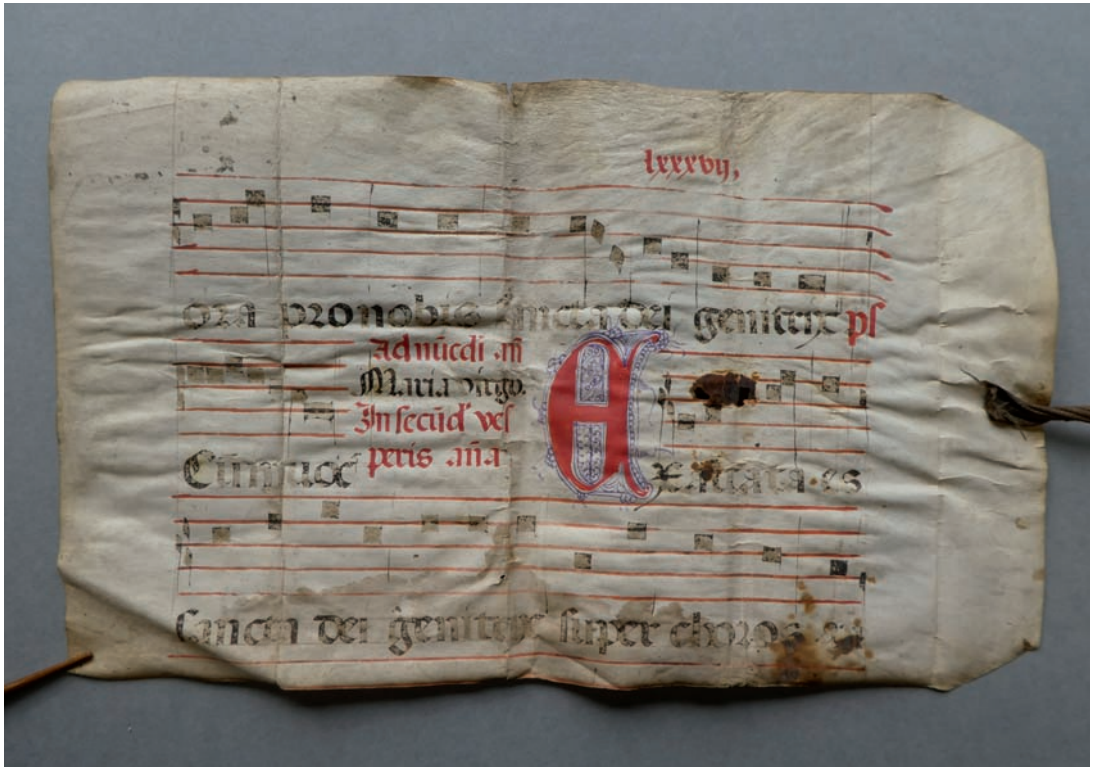 lxxxvij,
ora pro nobis sancta dei genitrix ps
ad nūcdi .añ
Maria virgo.
In secūd' ves
peris .aña
Cūinuoc̄
Exaltata es
sancta dei genitrix super choros